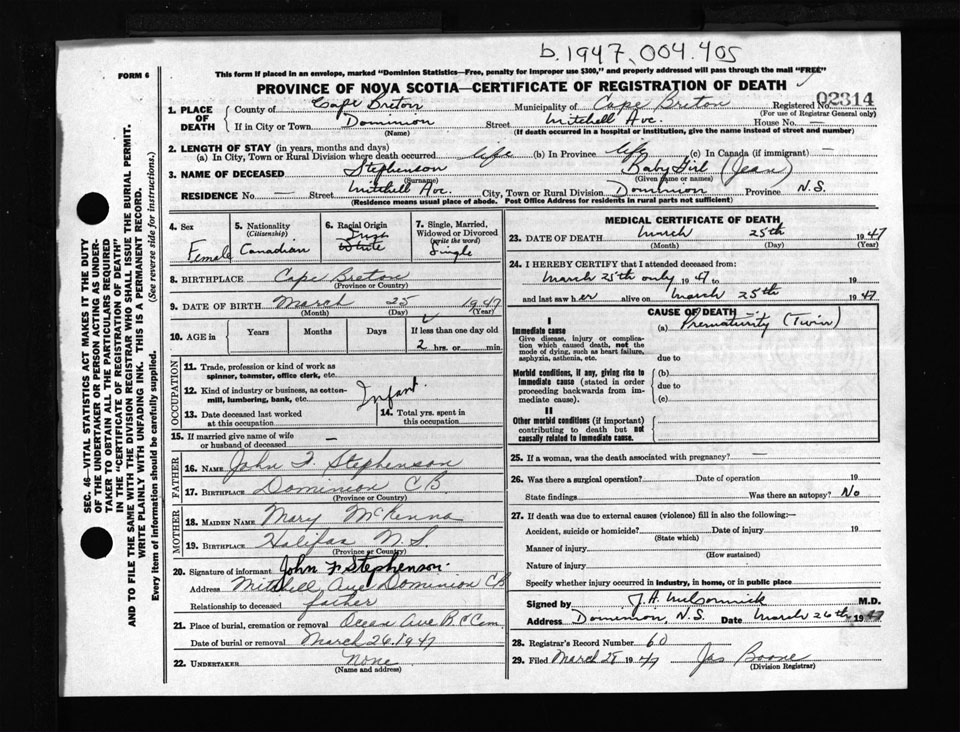 b.1947.004.405
FORM 6
This form if placed in an envelope, marked "Dominion Statistics—Free, penalty for improper use $300," and properly addressed will pass through the mail "FREE"
PROVINCE OF NOVA SCOTIA—CERTIFICATE OF REGISTRATION OF DEATH
1. PLACE OF DEATH
County of Cape Breton Municipality of Cape Breton Registered No. 02314
(For use of Registrar General only)
If in City or Town Dominion Street Mitchell Ave. House No. —
(Name) (If death occurred in a hospital or institution, give the name instead of street and number)
2. LENGTH OF STAY (in years, months and days)
(a) In City, Town or Rural Division where death occurred life (b) In Province life (c) In Canada (if immigrant) —
3. NAME OF DECEASED Stephenson Baby Girl (Jean)
(Surname) (Given name or names)
RESIDENCE No — Street Mitchell Ave. City, Town or Rural Division Dominion Province N.S.
(Residence means usual place of abode. Post Office Address for residents in rural parts not sufficient)
4. Sex
Female
5. Nationality
(Citizenship)
Canadian
6. Racial Origin
White
7. Single, Married, Widowed or Divorced
(write the word)
Single
8. BIRTHPLACE Cape Breton
(Province or Country)
9. DATE OF BIRTH March 25 1947
(Month) (Day) (Year)
10. AGE in Years Months Days If less than one day old
2 hrs. or min.
OCCUPATION
11. Trade, profession or kind of work as
spinner, teamster, office clerk, etc.
12. Kind of industry or business, as cotton-
mill, lumbering, bank, etc. Infant.
13. Date deceased last worked
at this occupation
14. Total yrs. spent in
this occupation
15. If married give name of wife
or husband of deceased —
FATHER
16. NAME John F. Stephenson
17. BIRTHPLACE Dominion C B
(Province or Country)
MOTHER
18. MAIDEN NAME Mary McKenna
19. BIRTHPLACE Halifax N.S.
(Province or Country)
20. Signature of informant John F Stephenson
Address Mitchell Ave Dominion C B
Relationship to deceased father
21. Place of burial, cremation or removal Ocean Ave R.C Cem.
Date of burial or removal March 26, 1947
22. UNDERTAKER None
(Name and address)
MEDICAL CERTIFICATE OF DEATH
23. DATE OF DEATH March 25th 1947
(Month) (Day) (Year)
24. I HEREBY CERTIFY that I attended deceased from:
March 25th only 1947 to 19
and last saw her alive on March 25th 1947
CAUSE OF DEATH
I
Immediate cause
Give disease, injury or complica-
tion which caused death, not the
mode of dying, such as heart failure,
asphyxia, asthenia, etc.
(a) Prematurity (Twin)
due to
Morbid conditions, if any, giving rise to
immediate cause (stated in order
proceeding backwards from im-
mediate cause).
(b)
due to
(c)
II
Other morbid conditions (if important)
contributing to death but not
causally related to immediate cause.
25. If a woman, was the death associated with pregnancy? —
26. Was there a surgical operation? Date of operation 19
State findings Was there an autopsy? No
27. If death was due to external causes (violence) fill in also the following:—
Accident, suicide or homicide? Date of injury 19
(State which)
Manner of injury
(How sustained)
Nature of injury
Specify whether injury occurred in industry, in home, or in public place
Signed by J. A. McCormick M.D.
Address Dominion, N.S. Date March 26th 1947
28. Registrar's Record Number 60
29. Filed March 28 1947 Jas Boone
(Division Registrar)
SEC. 46—VITAL STATISTICS ACT MAKES IT THE DUTY
OF THE UNDERTAKER OR PERSON ACTING AS UNDER-
TAKER TO OBTAIN ALL THE PARTICULARS REQUIRED
IN THE "CERTIFICATE OF REGISTRATION OF DEATH"
AND TO FILE THE SAME WITH THE DIVISION REGISTRAR WHO SHALL ISSUE THE BURIAL PERMIT.
WRITE PLAINLY WITH UNFADING INK. THIS IS A PERMANENT RECORD.
Every item of information should be carefully supplied. (See reverse side for instructions.)